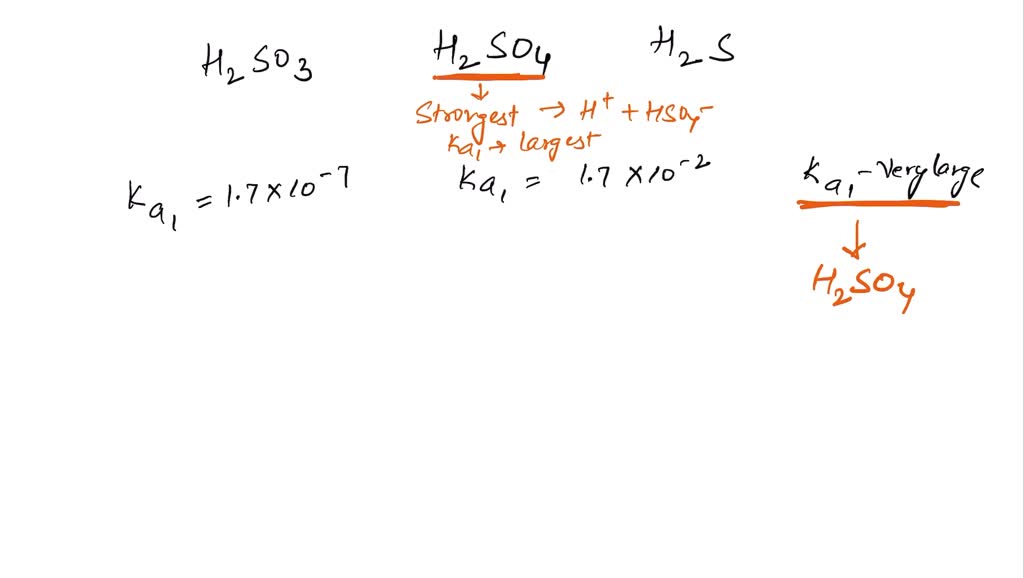 H₂SO₃ H₂SO₄ H₂S
↓
Strongest → H⁺ + HSO₄⁻
Ka₁ → largest
Ka₁ = 1.7 × 10⁻⁷ Ka₁ = 1.7 × 10⁻² Ka₁ - Very large
↓
H₂SO₄